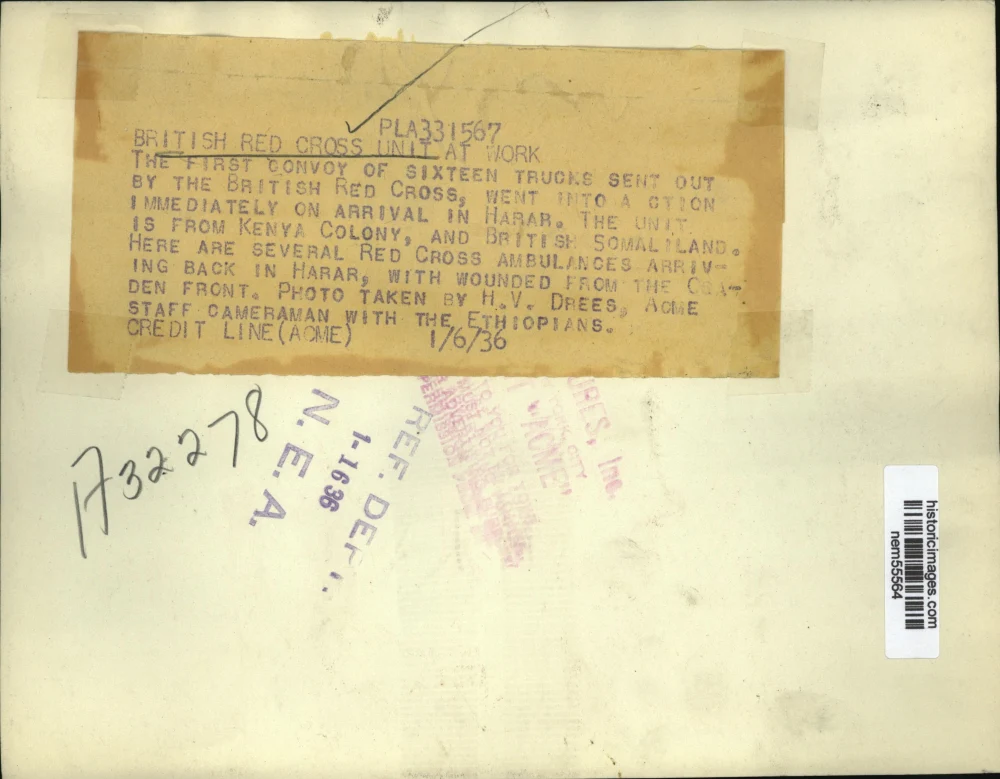 PLA331567
BRITISH RED CROSS UNIT AT WORK
THE FIRST CONVOY OF SIXTEEN TRUCKS SENT OUT
BY THE BRITISH RED CROSS, WENT INTO A CTION
IMMEDIATELY ON ARRIVAL IN HARAR. THE UNIT
IS FROM KENYA COLONY, AND BRITISH SOMALILAND.
HERE ARE SEVERAL RED CROSS AMBULANCES ARRIV-
ING BACK IN HARAR, WITH WOUNDED FROM THE OGA-
DEN FRONT. PHOTO TAKEN BY H.V. DREES, ACME
STAFF CAMERAMAN WITH THE ETHIOPIANS.
CREDIT LINE(ACME) 1/6/36
A32278
REF. DEPT.
1-1636
N. E. A.
URES, Inc.
"ACME"
historicimages.com
nem55564